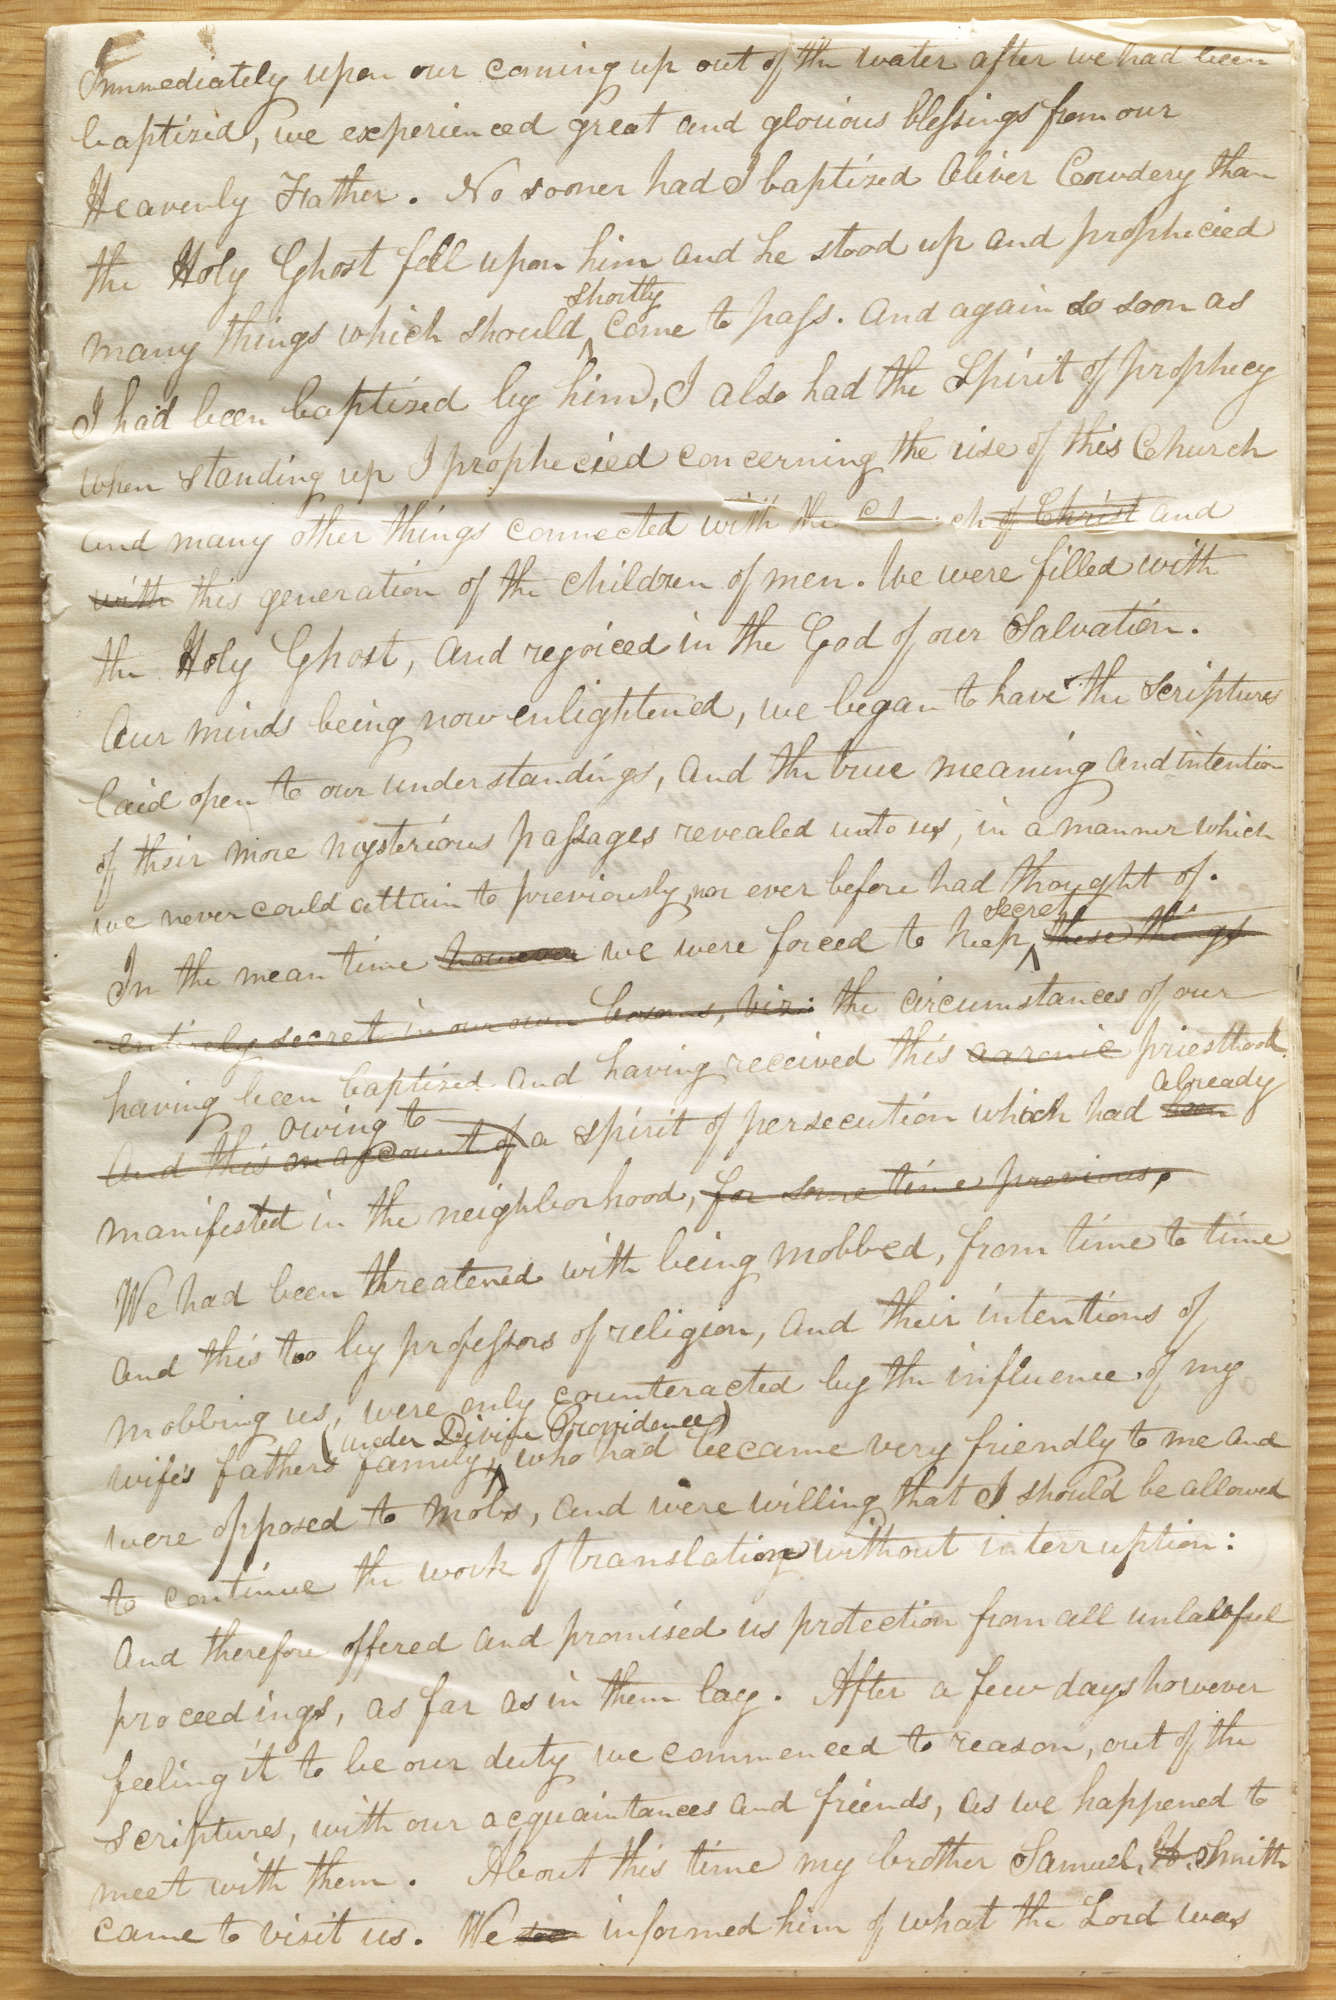 Immediately upon our coming up out of the water after we had been
baptized, we experienced great and glorious blessings from our
Heavenly Father. No sooner had I baptized Oliver Cowdery than
the Holy Ghost fell upon him and he stood up and prophecied
shortly
many things which should come to pass. And again so soon as
I had been baptized by him, I also had the Spirit of prophecy
when standing up I prophecied concerning the rise of this Church
and many other things connected with the Church of Christ and
with this generation of the children of men. We were filled with
the Holy Ghost, and rejoiced in the God of our Salvation.
Our minds being now enlightened, we began to have the Scriptures
laid open to our understandings, and the true meaning and intention
of their more mysterious passages revealed unto us, in a manner which
we never could attain to previously, nor ever before had thought of.
secret
In the mean time however we were forced to keep these things
entirely secret in our own bosoms, viz: the circumstances of our
having been baptized and having received this aaronic priesthood
owing to already
and this on account of a spirit of persecution which had been
manifested in the neighborhood, for some time previous,
We had been threatened with being mobbed, from time to time
and this too by professors of religion, and their intentions of
mobbing us, were only counteracted by the influence of my
(under Divine Providence)
wife's fathers family, who had became very friendly to me and
were opposed to mobs, and were willing that I should be allowed
to continue the work of translation without interruption:
And therefore offered and promised us protection from all unlawful
proceedings, as far as in them lay. After a few days however
feeling it to be our duty we commenced to reason, out of the
scriptures, with our acquaintances and friends, as we happened to
meet with them. About this time my brother Samuel, H. Smith
came to visit us. We soon informed him of what the Lord was